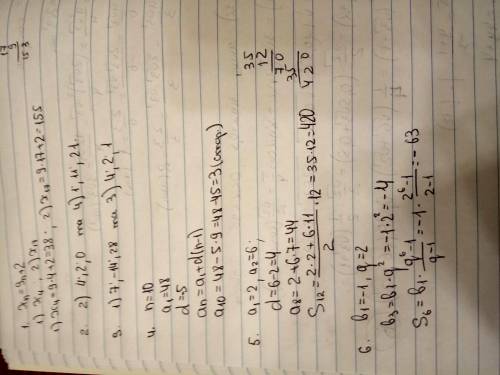 17
9
153
1. xn=9n+2
1) x4, 2) x17
1) x4=9·4+2=38; 2) x17=9·17+2=155
2. 2) 4; 2; 0 та 4) 1, 11, 21.
3. 1) 7; -14, 28 та 3) 4; 2, 1
4. n=10
a1=48
d=5
an=a1+d(n-1)
a10=48-5·9=48-45=3(сахар)
5. a1=2, a2=6;
d=6-2=4
a8=2+6·7=44
S12=2·2+6·11/2·12=35·12=420
35
12
70
35
420
6. b1=-1, q=2
b3=b1·q²=-1·2²=-4
S6=b1·q⁶-1/q-1=-1·2⁶-1/2-1=-63